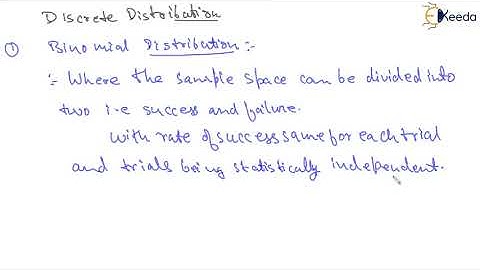 Discrete Distribution
Ekeeda
① Binomial Distribution :-
:- Where the sample space can be divided into
two i.e success and failure.
with rate of success same for each trial
and trials being statistically independent.